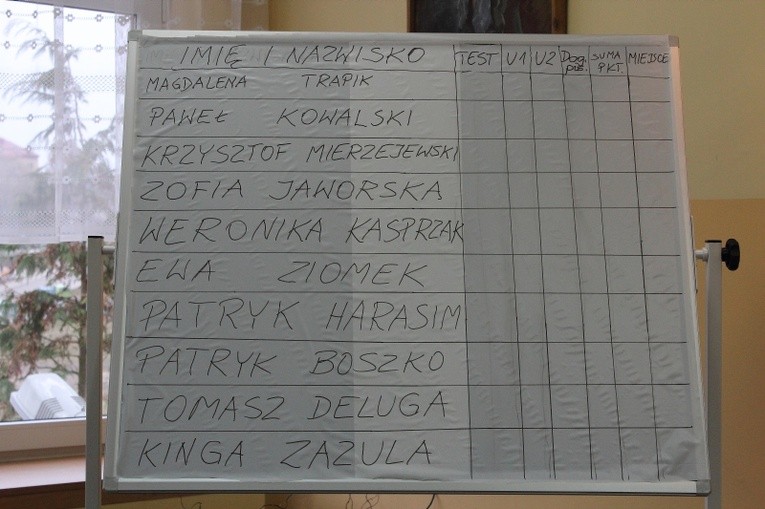 IMIĘ I NAZWISKO TEST U1 U2 Dog. poś. SUMA PKT. MIEJSCE
MAGDALENA TRAPIK
PAWEŁ KOWALSKI
KRZYSZTOF MIERZEJEWSKI
ZOFIA JAWORSKA
WERONIKA KASPRZAK
EWA ZIOMEK
PATRYK HARASIM
PATRYK BOSZKO
TOMASZ DELUGA
KINGA ZAZULA